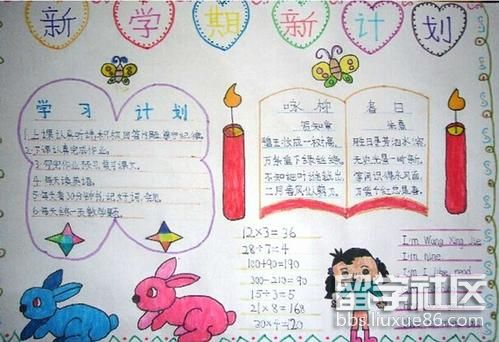 新学期新计划
学习计划
1.上课认真听讲,积极回答问题,遵守纪律。
2.下课认真完成作业。
3.作业预习复习课文。
4.每天读英语。
5.每天看30分钟书,记好词、好句。
6.每天练一页数学题。
咏柳
贺知章
碧玉妆成一树高,
万条垂下绿丝绦。
不知细叶谁裁出,
二月春风似剪刀。
春日
朱熹
胜日寻芳泗水滨,
无边光景一时新。
等闲识得东风面,
万紫千红总是春。
12×3=36
28÷7=4
100+90=190
300-210=90
15÷3=5
21×8=168
30×4=120
I'm Wang Xing Jie
I'm nine.
I'm I like read
留学社区
bbs.liuxue86.com